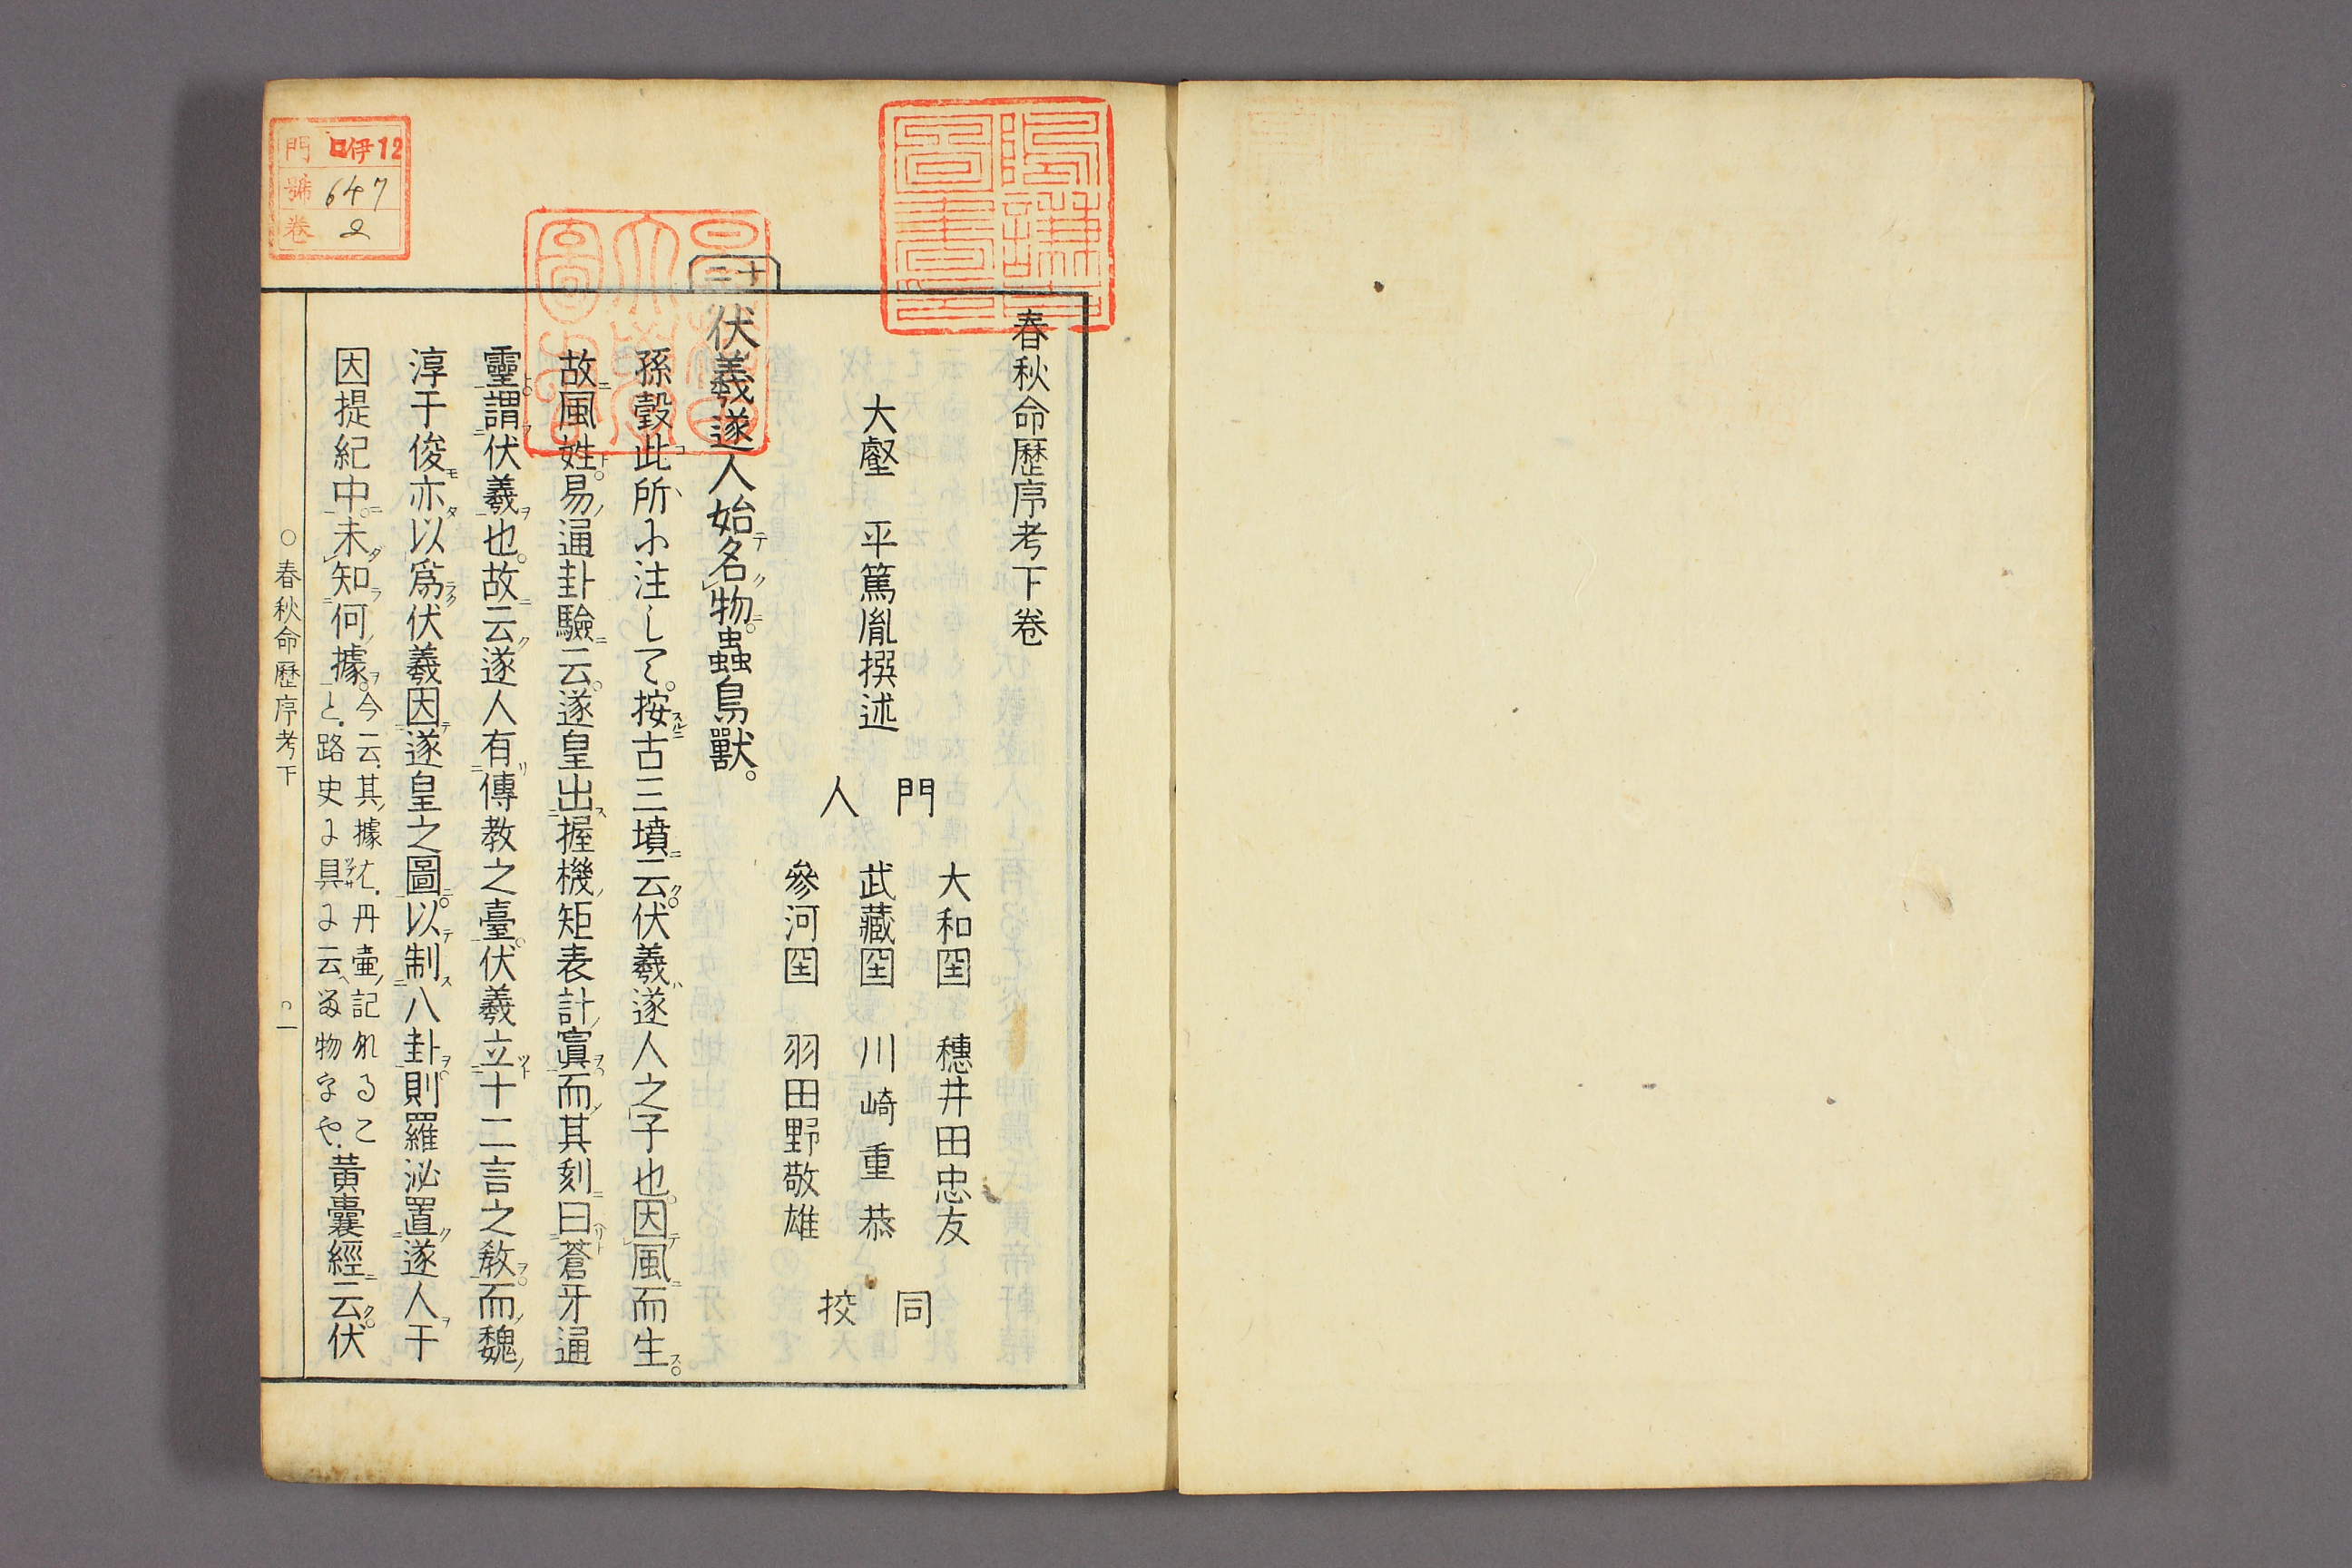 春秋命歷序考下卷
大壑　平篤胤撰述
門人
大和国　穗井田忠友
武藏国　川崎重恭
參河国　羽田野敬雄
同挍
十二
伏羲遂人始名物蟲鳥獸。
孫瑴此所小注して。按古三墳云。伏羲遂人之子也。因風而生。
故風姓。易通卦驗云。遂皇出握機矩表計寘而其刻曰蒼牙通
靈。謂伏羲也。故云遂人有傳教之臺。伏羲立十二言之敎而魏
淳于俊亦以爲伏羲因遂皇之圖。以制八卦。則羅泌置遂人于
因提紀中。未知何據。
今云、其據は、丹壷記なるこ
と、路史に具に云へる物をや、
黃囊經云。伏
○春秋命歷序考下
一
門 伊12
號 647
卷 2